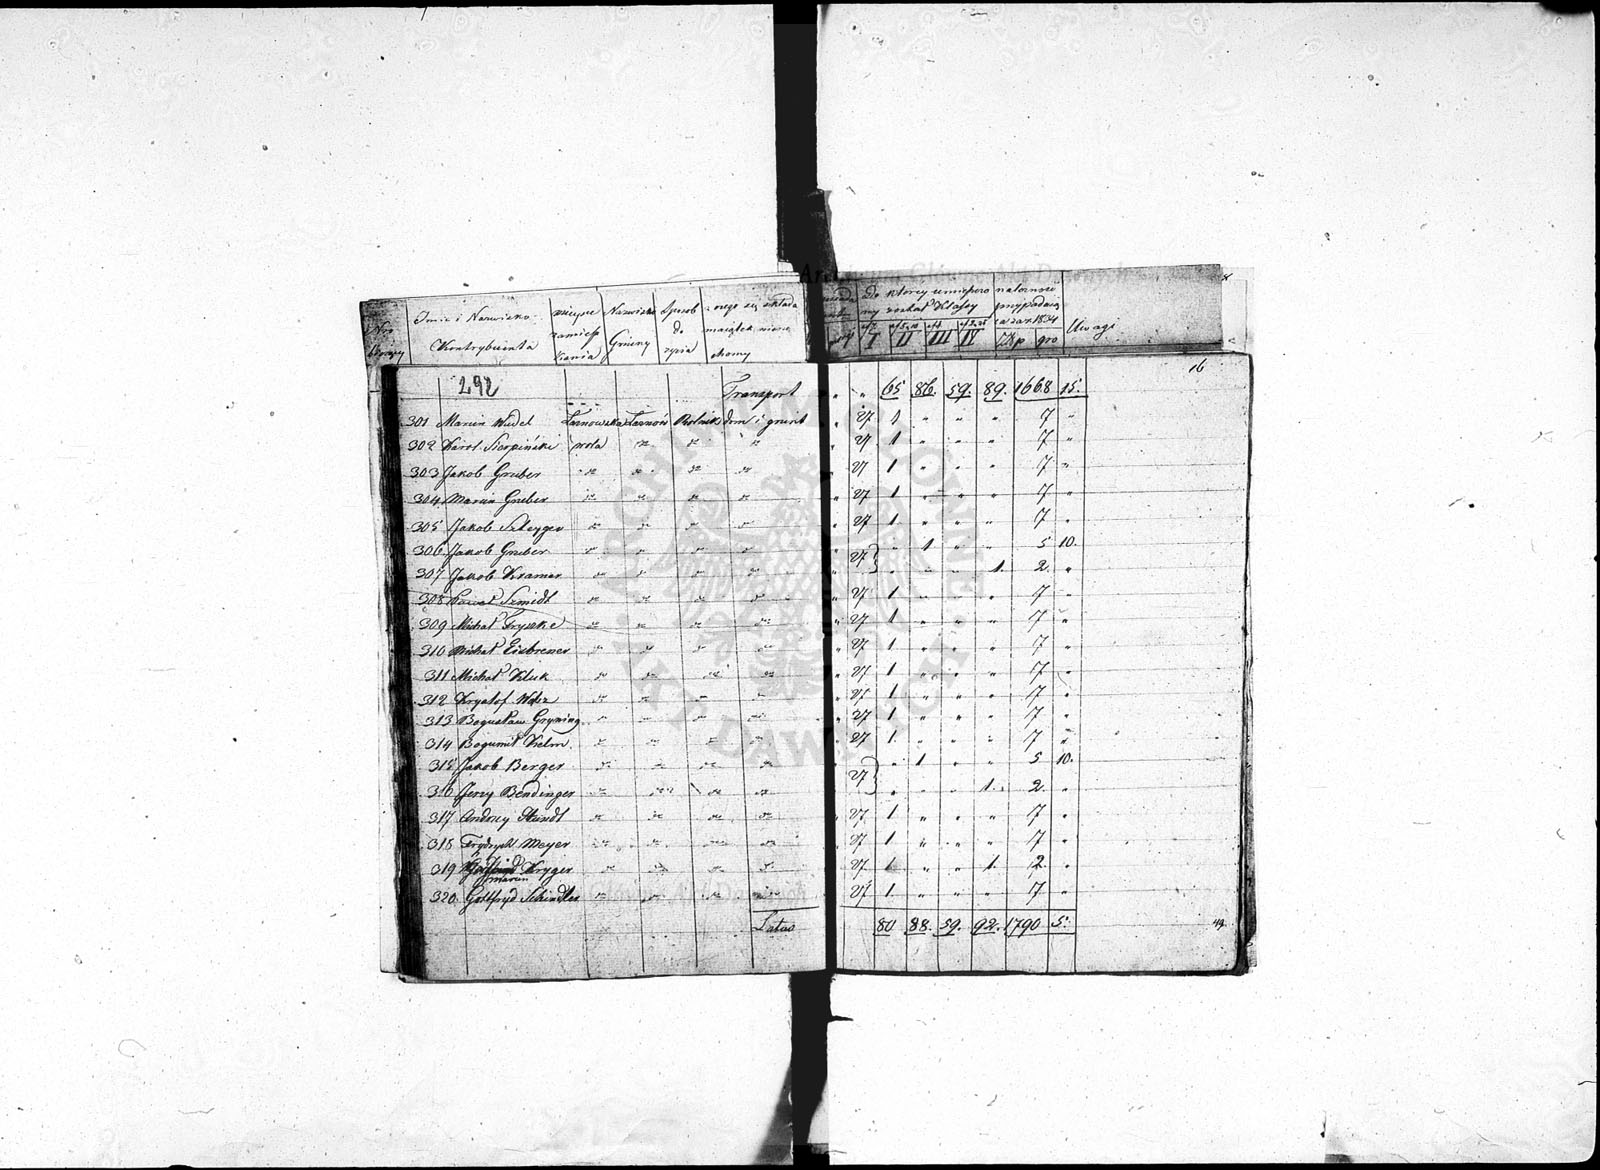 Imie i Nazwisko Kontrybuenta
miejsce zamiesz kania
Nazwisko Gminy
Sposob do życia
z czego się składa majątek nieru chomy
Do ktorey umieszczo ny został Klassy
I II III IV
należność przypadaią za rok 1834
Złp gro
Uwagi
16
292 Transport " " 65 86. 59. 89. 1668 15.
301 Marcin Wudel Łaznowska Łaznów Rolnik dom i grunt " 27 1 " " " 7 "
302 Karol Sierpiński wola " " " " 27 1 " " " 7 "
303 Jakob Gruber " " " " " 27 1 " " " 7 "
304 Marcin Gruber " " " " " 27 1 " " " 7 "
305 Jakob Szteyger " " " " " 27 1 " " " 7 "
306 Jakob Gruber " " " " " 27 " 1 " " 5 10.
307 Jakob Kramer " " " " " " " " 1. 2. "
308 Paweł Szmidt " " " " " 27 1 " " " 7 "
309 Michał Fryszke " " " " " 27 1 " " " 7 "
310 Michał Eizbrener " " " " " 27 1 " " " 7 "
311 Michał Kluk " " " " " 27 1 " " " 7 "
312 Krysztof Walz " " " " " 27 1 " " " 7 "
313 Bogusław Gryning " " " " " 27 1 " " " 7 "
314 Bogumił Kielm " " " " " 27 1. " " " 7 "
315 Jakob Berger " " " " " 27 " 1 " " 5 10.
316 Jerzy Bendinger " " " " " " " " 1. 2. "
317 Andrzey Sztindt " " " " " 27 1 " " " 7 "
318 Frydrych Meyer " " " " " 27 1 " " " 7 "
319 Marcin Kryger " " " " " 27 1 " " 1. 2. "
320 Gottfryd Schindler " " " " " 27 1. " " " 7 "
Latus 80 88. 59. 92. 1790 5.
ARCHIWUM GŁÓWNE AKT DAWNYCH